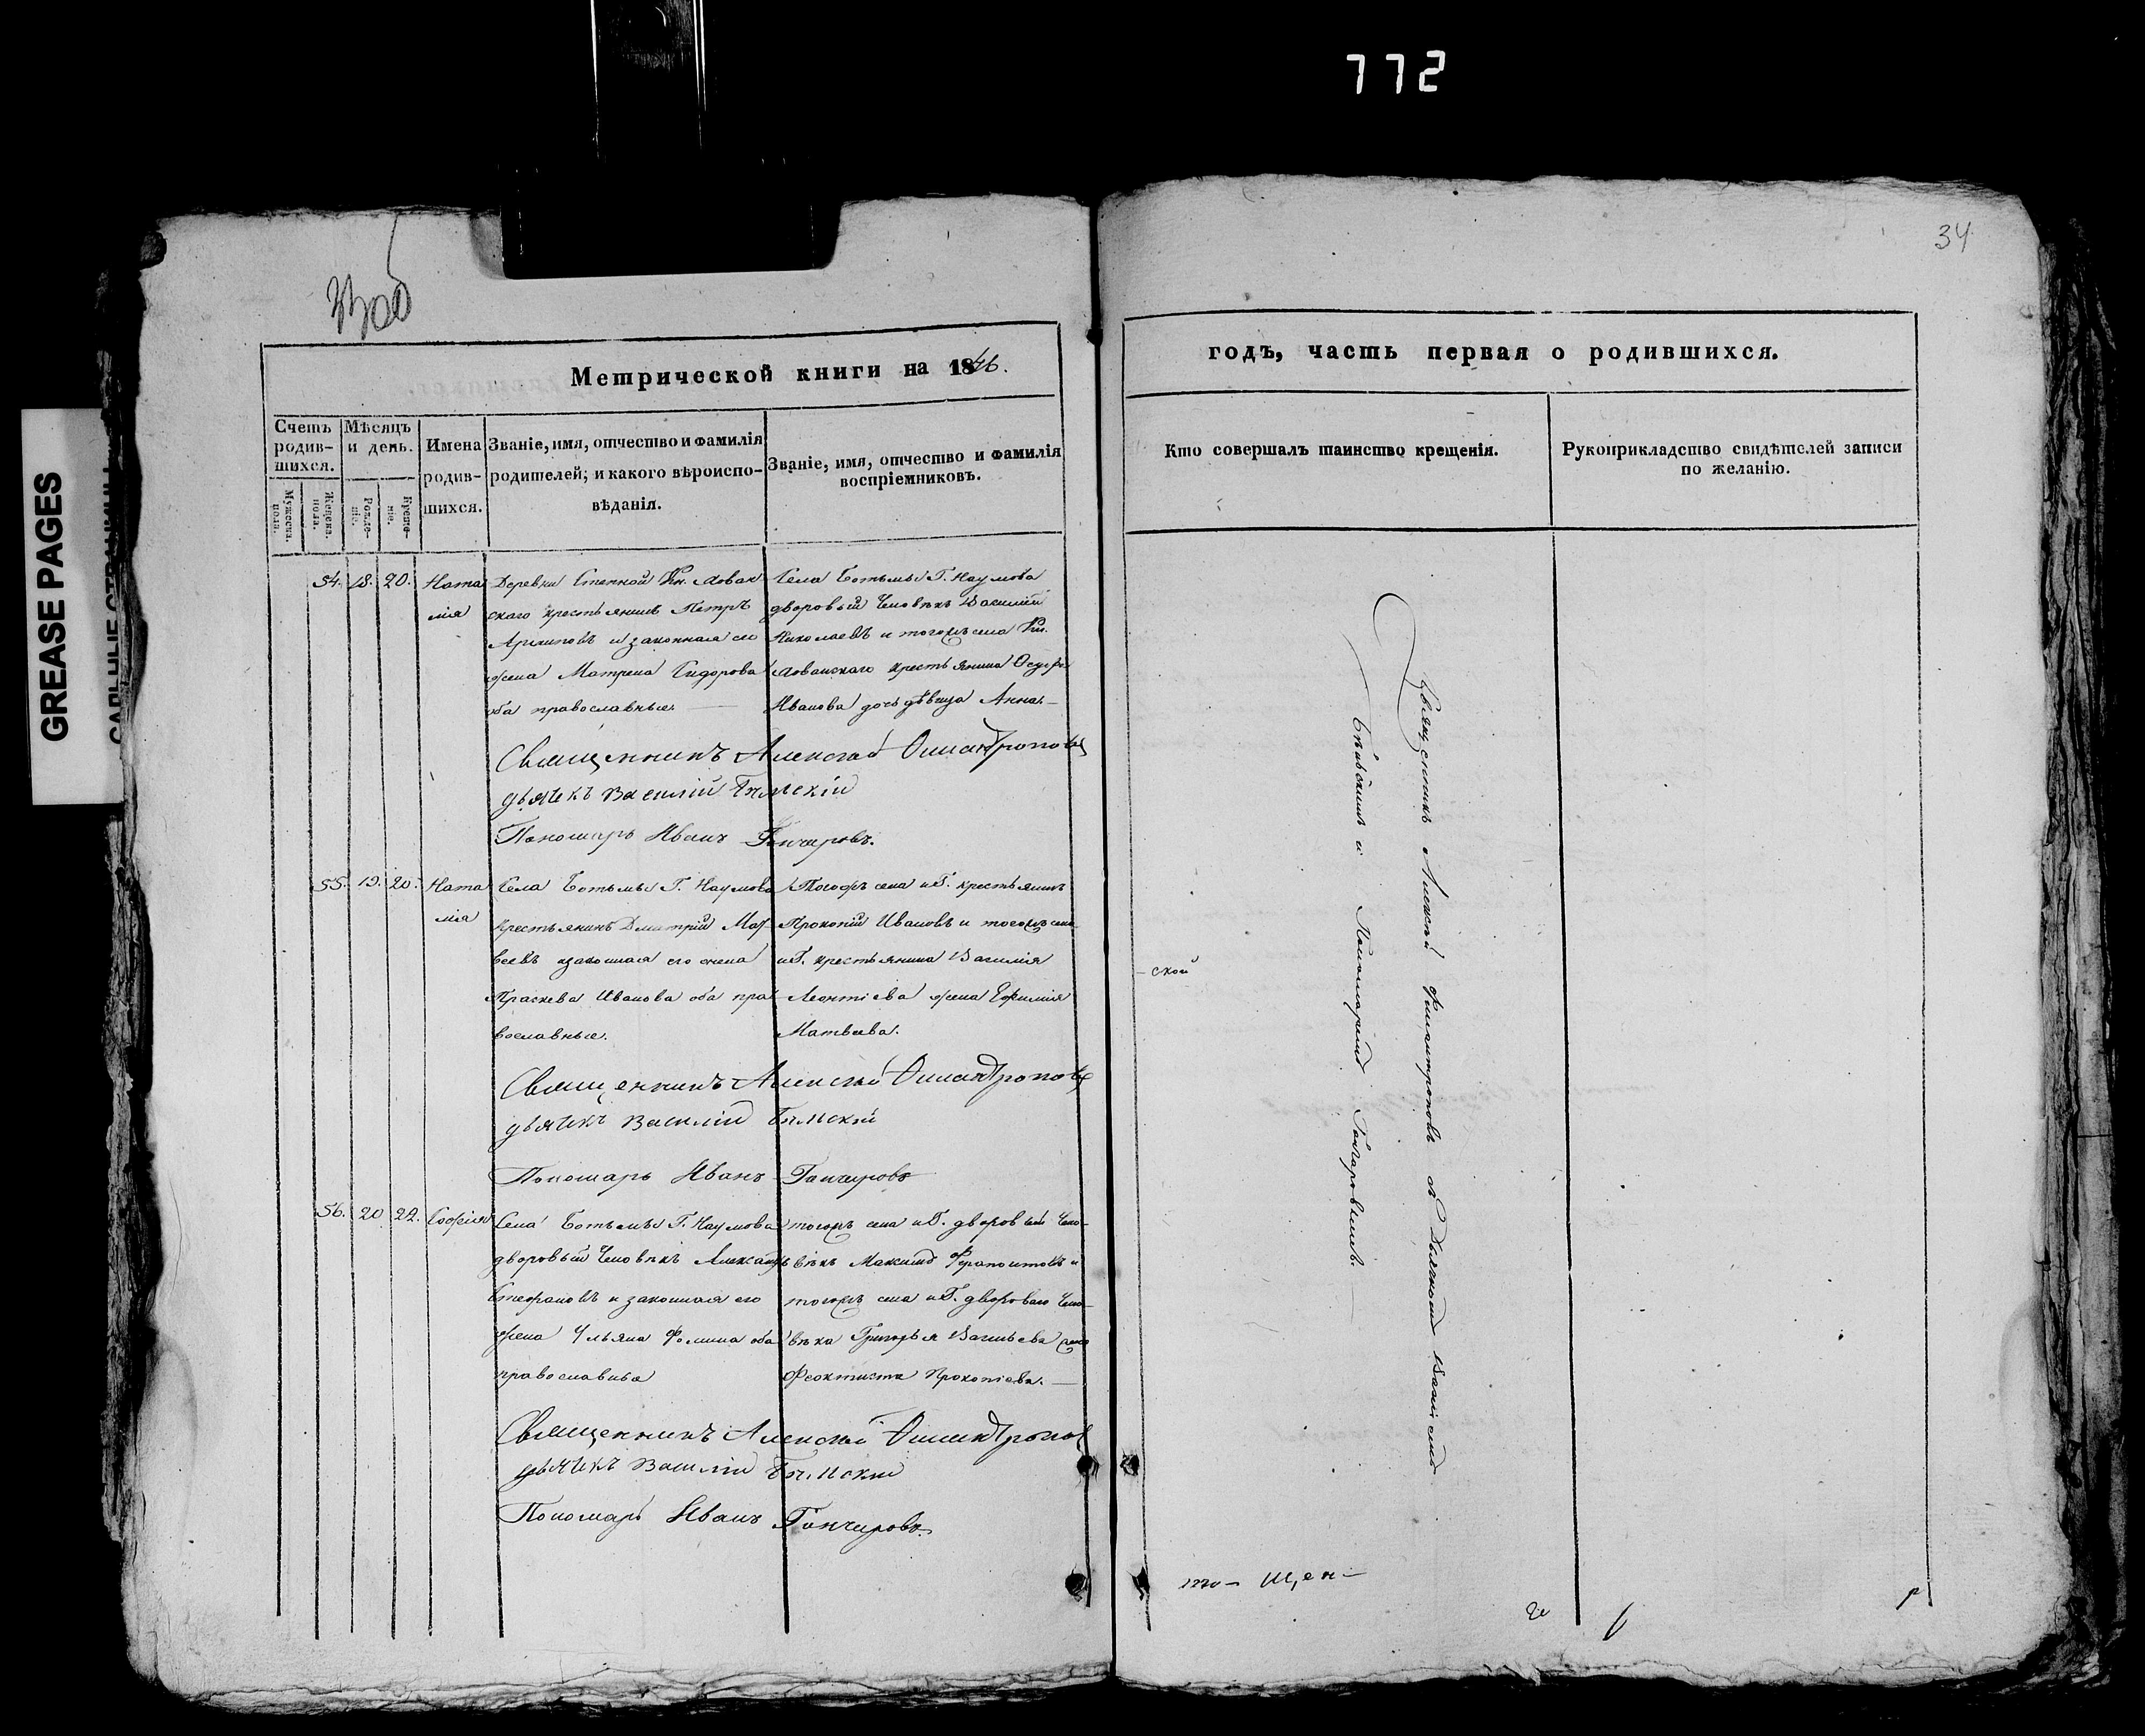 772
GREASE PAGES
34
Метрической книги на 1846.
годъ, часть первая о родившихся.
Счетъ родив-шихся.
Мужеска. пола.
Женска. пола.
Мѣсяцъ и день.
Рожде-ніе.
Креще-ніе.
Имена родив-шихся.
Званіе, имя, отчество и фамилія
родителей; и какого вѣроиспо-
вѣданія.
Званіе, имя, отчество и фамилія
воспріемниковъ.
Кто совершалъ таинство крещенія.
Рукоприкладство свидѣтелей записи
по желанію.
54. 18. 20. Ната
лія
Деревни Степной Кн. Хован
скаго крестьянинъ Петръ
Архиповъ и законная его
жена Матрена Сидорова
оба православные.
Села Ботьмы Г. Наумова
дворовый Человѣкъ Василий
Николаевъ и тогожъ села Кн.
Хованскаго крестьянина
Иванова дочь дѣвица Анна.
Священникъ Алексѣй Филантроповъ
дьячекъ Василій Бѣльскій
Пономарь Иванъ Гончаровъ.
55. 19. 20. Ната
лія
Села Ботьмы Г. Наумова
крестьянинъ Дмитрій Мат
веевъ и законная его жена
Праскева Иванова оба пра
вославные.
Тогожъ села и Г. крестьянинъ
Прокопій Ивановъ и тогожъ села
и Г. крестьянина Василія
Леонтіева жена Ефимія
Матвеева.
Священникъ Алексѣй Филантроповъ
дьячекъ Василій Бѣльскій
Пономарь Иванъ Гончаровъ
56. 20 22. Софія
Села Ботьмы Г. Наумова
дворовый Человѣкъ Александръ
Стефановъ и законная его
жена Ульяна Фомина оба
православные
тогожъ села и Г. дворовый Чело-
вѣкъ Максимъ Ферапонтовъ и
тогожъ села и Г. дворового Чело-
вѣка Григорья Васильева жена
Феоктиста Прокопіева.
Священникъ Алексѣй Филантропов
дьячекъ Василій Бѣльскій
Пономарь Иванъ Гончаровъ.
Священникъ Алексѣй Филантроповъ съ Дьячкомъ Василіемъ
Бѣльскимъ и Пономаремъ Гончаровымъ.
- ской
- щен -